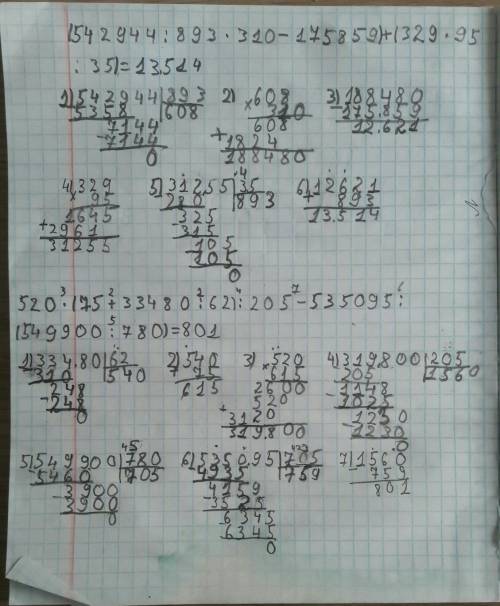 (542944 : 893 · 310 - 175859) + (329 · 95
: 35) = 13.514
1) 542944 | 893 2) 608 3) 188480
5358 | 608 × 310 - 175.859
7144 608 12.621
- 7144 + 1824
0 188480
4) 329 5) 31255 | 35 6) 12621
× 95 280 | 893 + 893
1645 325 13.514
+ 2961 - 315
31255 105
105
0
520 · (75 + 33480 : 62) : 205 - 535095 :
(549900 : 780) = 801
1) 334.80 | 62 2) 540 3) 520 4) 319.800 | 205
310 | 540 + 75 × 615 205 | 1560
248 615 2600 1148
- 248 520 - 1025
0 + 3120 1230
319.800 - 1230
0
5) 549900 | 780 6) 535.095 | 705 7) 1560
5460 | 705 4935 | 759 759
3900 4159 801
3900 - 3525
0 6345
6345
0